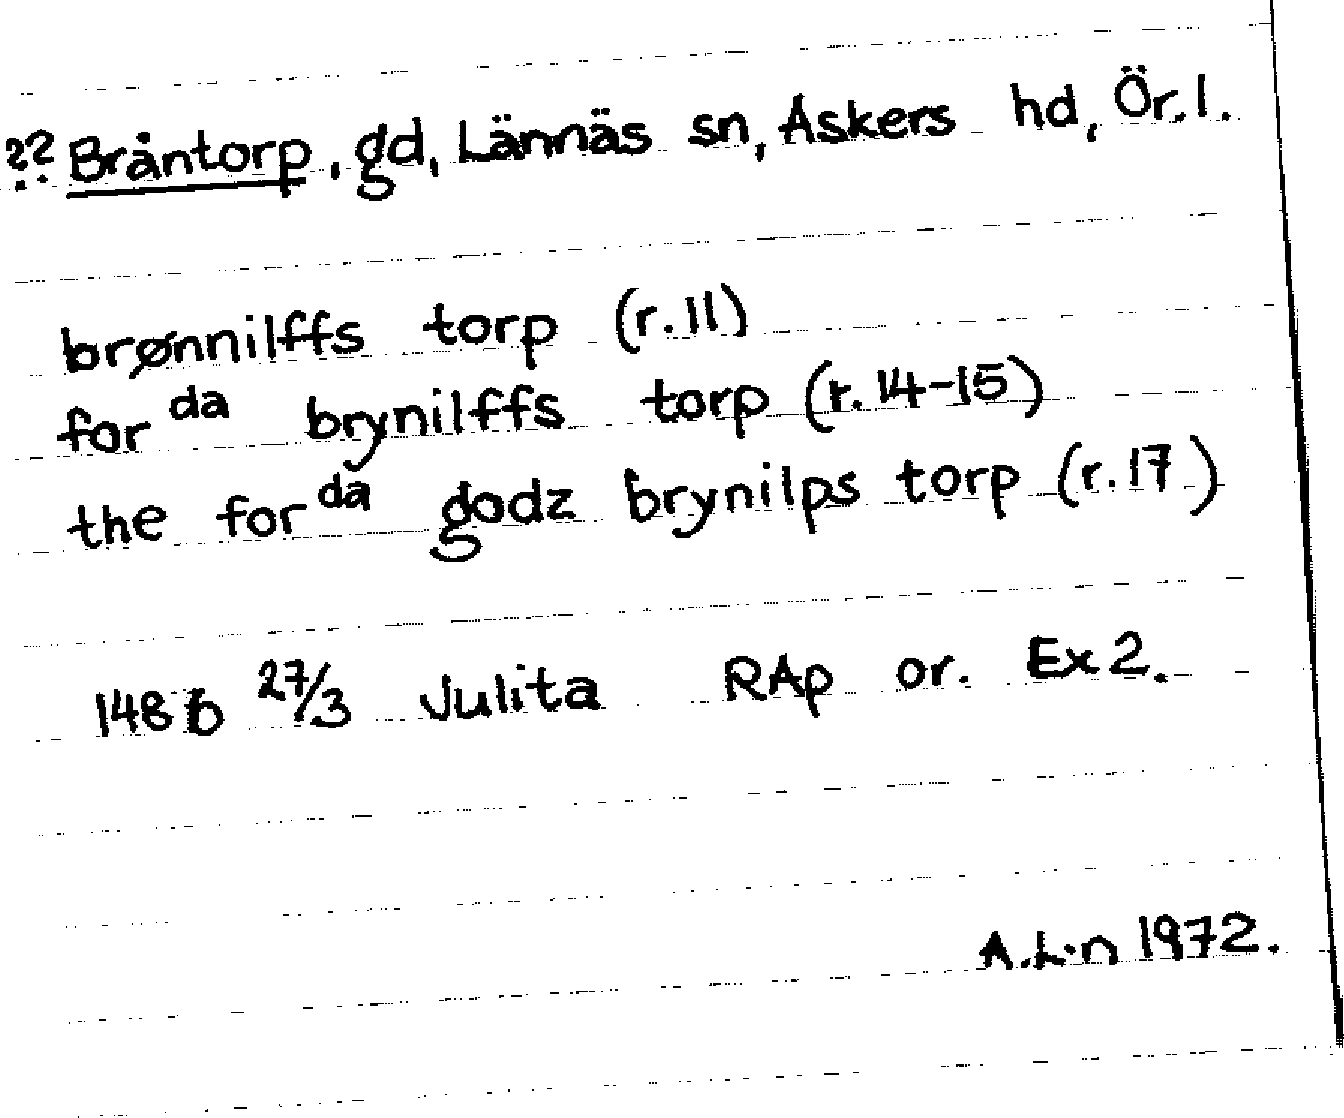 ?? Bråntorp, gd, Lännäs sn, Askers hd, Ör. l.
brønnilffs torp (r. 11)
for da brynilffs torp (r. 14-15)
the for da godz brynilps torp (r. 17)
1486 27/3 Julita RAp or. Ex 2.
A.L-n 1972.